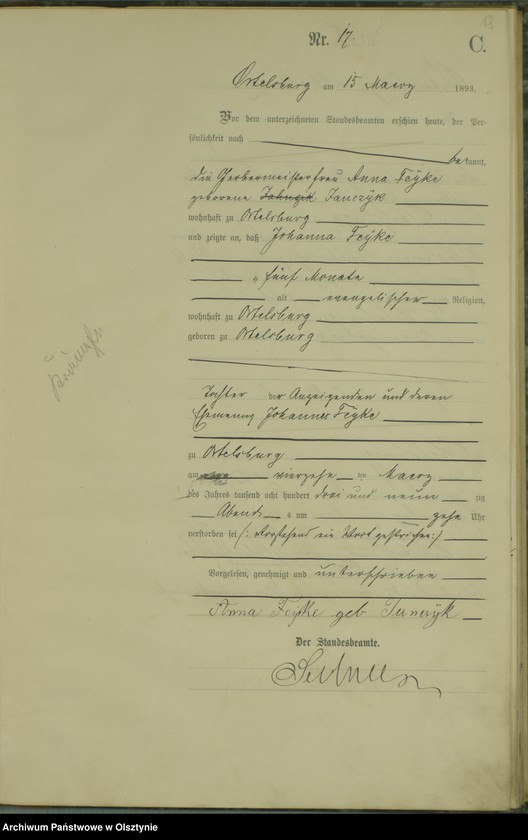 Nr. 17.
C.
Ortelsburg am 15 Maerz 1893.
Vor dem unterzeichneten Standesbeamten erschien heute, der Per-
sönlichkeit nach
bekannt,
die Gerbermeisterfrau Anna Feyke
geborene Janczyk
wohnhaft zu Ortelsburg
und zeigte an, daß Johanna Feyke
fünf Monate
alt evangelischer Religion,
wohnhaft zu Ortelsburg
geboren zu Ortelsburg
Tochter der Anzeigenden und deren
Ehemanns Johannes Feyke
zu Ortelsburg
am vierzehn ten Maerz
des Jahres tausend acht hundert drei und neun zig
Abends um zehn Uhr
verstorben sei (: Vorstehend ein Wort gestrichen :)
Vorgelesen, genehmigt und unterschrieben
Anna Feyke geb Janczyk
Der Standesbeamte.
Archiwum Państwowe w Olsztynie